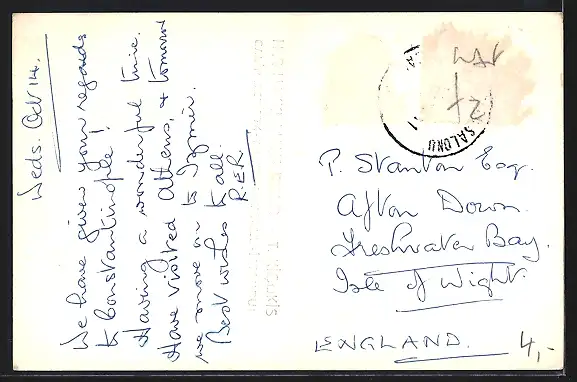 Weds. Oct 14.
We have given your regards
to Constantinople!
Having a wonderful time.
Have visited Athens, & tomorrow
we move on to Izmir.
Best wishes to all.
R.E.R.
SALONU
P. Stanton Esq.
Afton Down.
Freshwater Bay.
Isle of Wight.
ENGLAND.
4,-